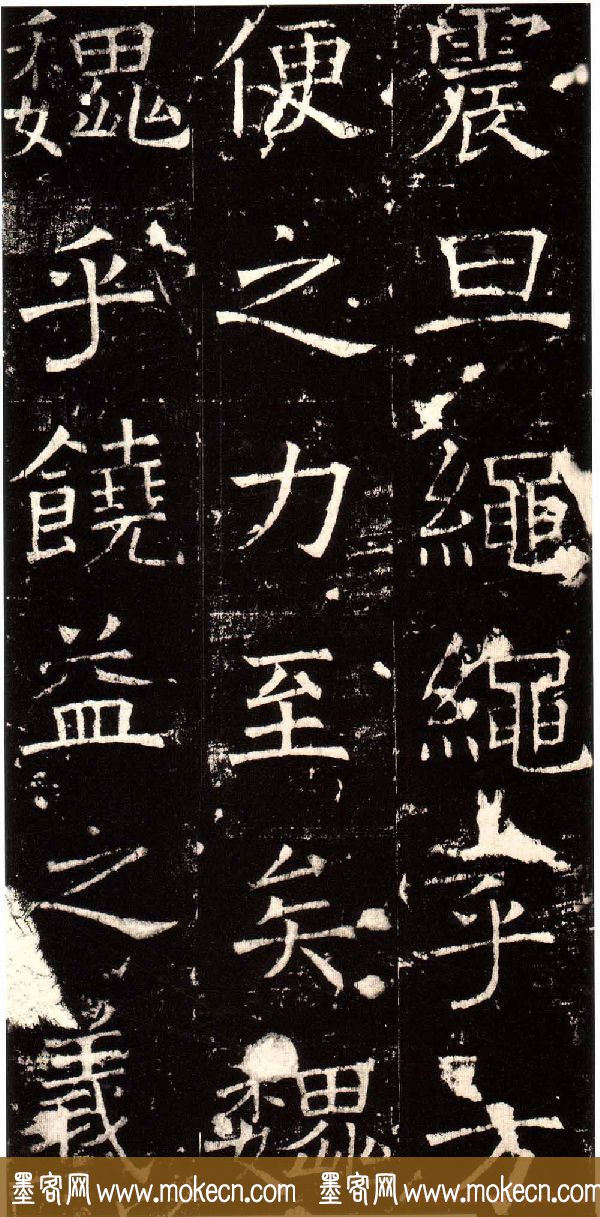 震旦繩繩乎方
便之力至矣巍
巍乎饒益之義
墨客网 www.mokecn.com 墨客网 www.mokecn.com